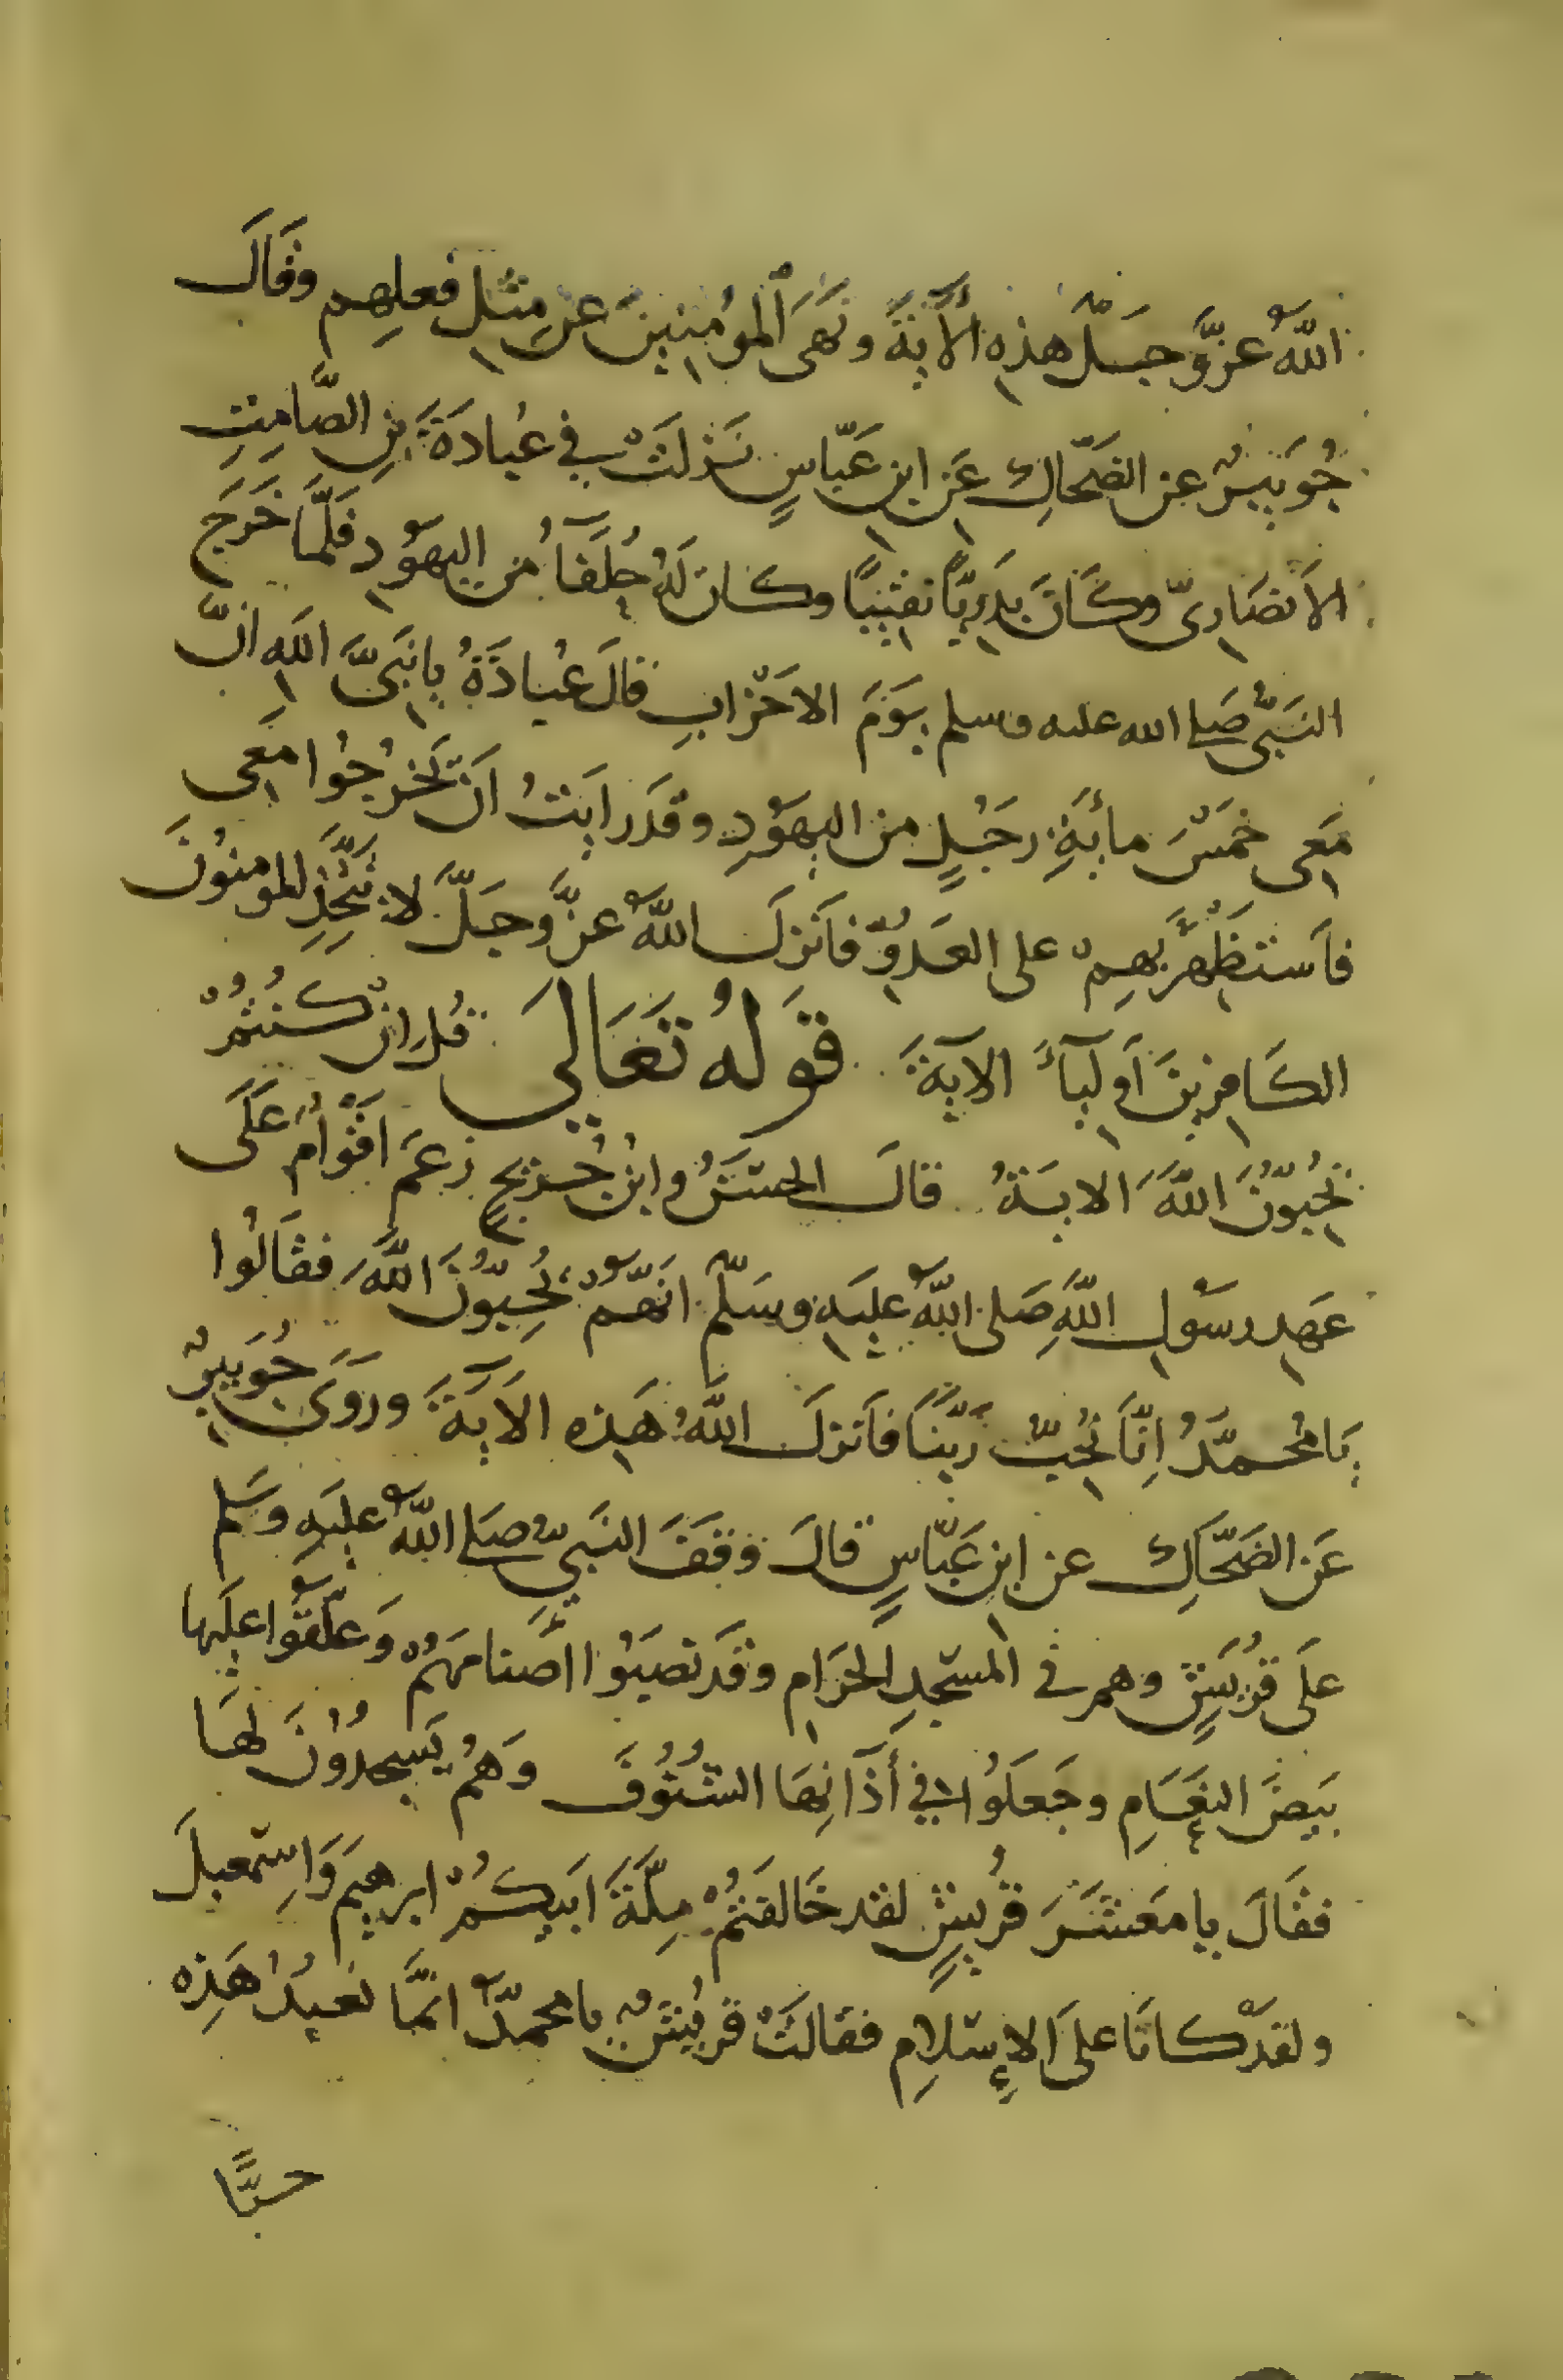 اللهُ عزَّ وجَلَّ هذه الآيةَ ونَهَى المؤمنينَ عن مِثلِ فعلِهِم وقَالَ
جُوَيبرٌ عن الضحّاكِ عَن ابنِ عَبّاسٍ نَزلَتْ في عُبادَةَ بنِ الصَّامِتِ
الأنصَاريّ وكَانَ بَدريًّا نَقيبًا وكان لَهُ حُلَفآءُ من اليهَودِ فلَمَّا خَرَجَ
النبيُّ صَلى الله عليه وسلم يَومَ الاحْزابِ قالَ عُبادَةُ يا نَبيَّ اللهِ انَّ
مَعى خمَسَ مأيةِ رجَلٍ من اليهَودِ وقدَ رايتُ اَن يَخرجُوا مَعى
فاَستَظْهرَ بهِم على العَدوّ فاَنزلَ اللهُ عزَّ وجَلَّ لا يتَّخِذِ المومنوُنَ
الكَافرينَ اَولياءَ الآيةَ قَولهُ تَعَالىَ قُل انْ كنُتُمْ
تُحبّونَ اللهَ الايةُ قالَ الحسَنُ وابنُ جُريجٍ زعَمَ اَقْوامٌ عَلَى
عَهدِ رسَولِ اللهِ صَلى اللهُ عليَهِ وسَلّم انَهّمْ يُحِبّونَ اللهَ فقَالُوا
يَا محُمّدُ اِنّاَ نُحبّ رَبّنَا فاَنزلَ اللهُ هَذه الآيَةَ ورَوَى جُوَيبرٌ
عَن الضَحّاكِ عن ابنِ عَبّاسٍ قالَ وَقفَ النَبيُّ صَلى اللهُ عليَهِ وسَلم
علَى قُريَشٍ وهم في المسَجدِ الحَرَامِ وقَد نصَبَوا اصَنامَهُمْ وَعَلّقَوا علَيها
بَيضَ النعَامِ وجَعلَوا في أَذَانِهَا الشُنُوفَ وَهُم يَسجدُونَ لَهَا
فقَالَ يا مَعشَرَ قُريشٍ لقد خَالفتمُ مِلّةَ اَبيكُمْ ابرهيمَ وَاِسمعيلَ
ولقدَ كانَا علىَ الإسَلامِ فقالتَ قريُشٌ يا محمدُّ انمَّا نَعبدُ هَذِه
حبًّا